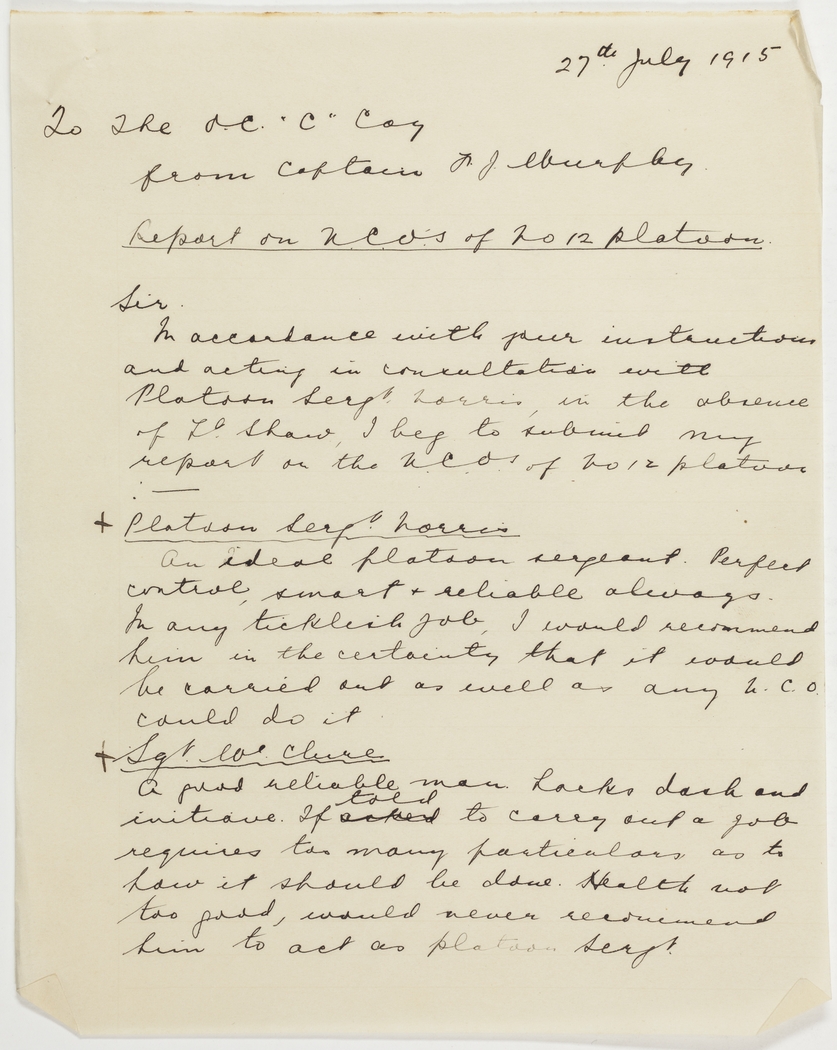 27th July 1915
To The O.C. "C" Coy
from Captain F. J. Murphy.
Report on N.C.O's of No 12 platoon.
Sir.
In accordance with your instructions
and acting in consultation with
Platoon Sergt. Norris, in the absence
of Lt. Shaw, I beg to submit my
report on the N.C.O's of No 12 platoon
:—
+ Platoon Sergt. Norris
An ideal platoon sergeant. Perfect
control, smart + reliable always.
In any ticklish job, I would recommend
him in the certainty that it would
be carried out as well as any N.C.O.
could do it
+ Sgt. McClure
A good reliable man. Lacks dash and
initiave. If asked told to carry out a job
requires too many particulars as to
how it should be done. Health not
too good, would never recommend
him to act as platoon Sergt.